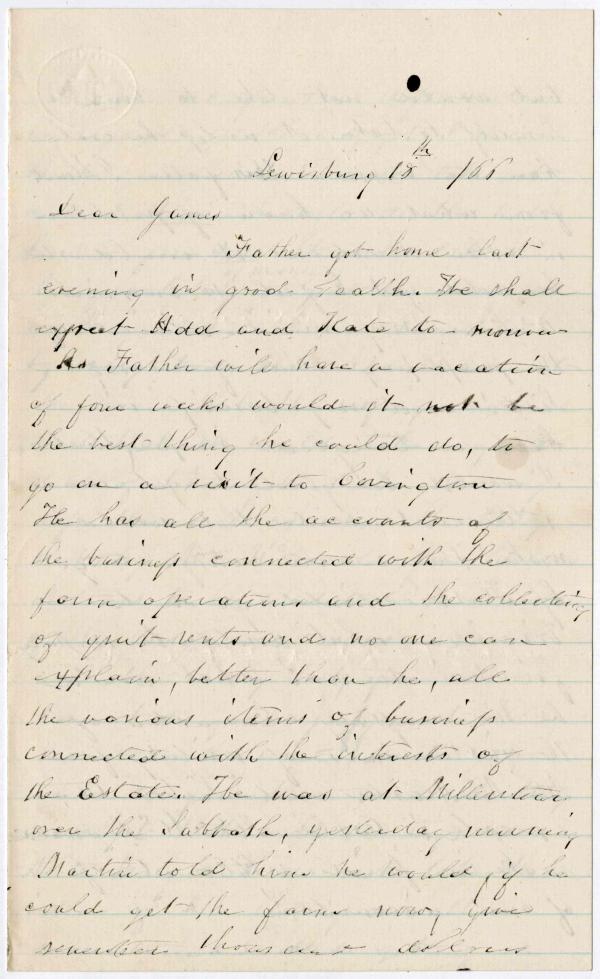 Lewisburg 18th /66
Dear James
Father got home last
evening in good health. We shall
expect Add and Kate to-morrow
As Father will have a vacation
of four weeks would it not be
the best thing he could do, to
go on a visit to Covington
He has all the accounts of
the business connected with the
farm operations and the collecting
of quit rents and no one can
explain, better than he, all
the various items of business
connected with the interests of
the Estate. He was at Millerstown
over the Sabbath, yesterday morning
Martin told him he would, if he
could get the farm now, give
seventeen thousand dollars